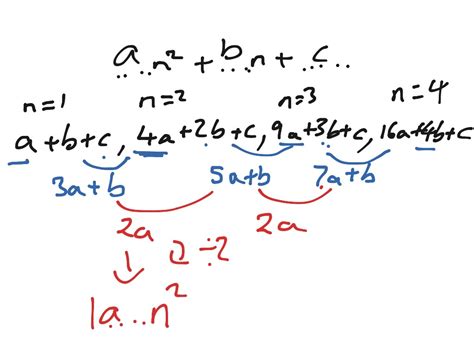 a...n² + b...n + c...
n=1 n=2 n=3 n=4
a+b+c, 4a+2b+c, 9a+3b+c, 16a+4b+c
3a+b 5a+b 7a+b
2a 2a
2 ÷2
1a...n²